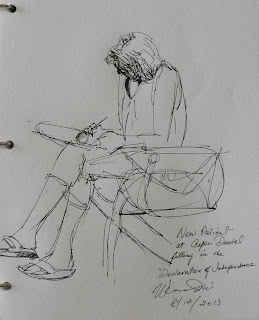 New Patient
at Aspen Dental
filling in the
Declaration of Independence
8/14/2013